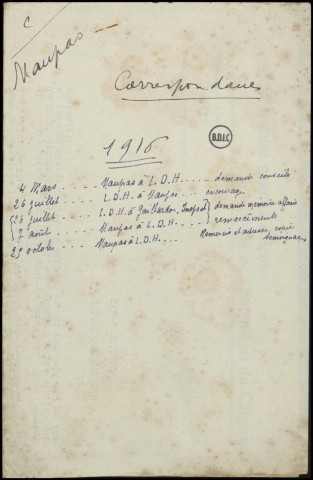 C
Maupas
Correspondance
1916
B.D.I.C
4 Mars .... Maupas à L.D.H. .... demande conseils
26 juillet .... L.D.H. à Maupas .... encourage
26 juillet .... L.D.H. à Gaillardon, Inspect } demande mémoire affaire
7 août .... Maupas à L.D.H. .... } remerciements
29 octobre .... Maupas à L.D.H. .... Remercie et adresse copie
témoignages